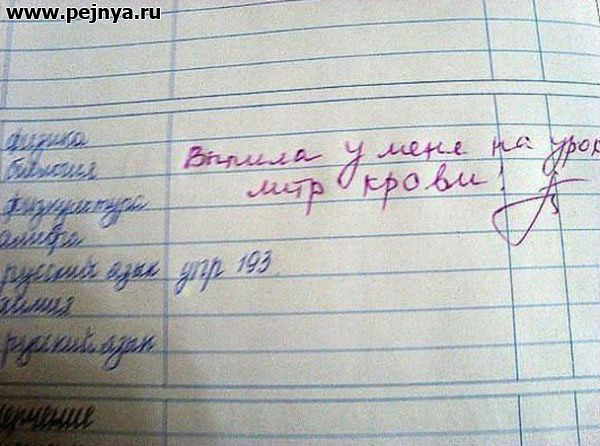 www.pejnya.ru
физика
Выпила у мене на урок
биология
литр крови!
физкультура
алгебра
русский язык упр 193.
химия
русский язык
черчение